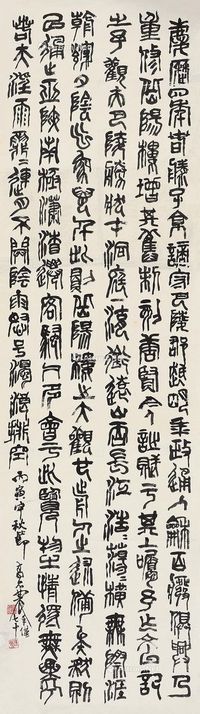 慶歷四年春滕子京謫守巴陵郡越明年政通人和百廢俱興乃
重修岳陽樓增其舊制刻唐賢今詩賦于其上屬予作文以記
之予觀夫巴陵勝狀在洞庭一湖銜遠山吞長江浩浩蕩蕩橫無際涯
朝暉夕陰氣象萬千此則岳陽樓之大觀也前人之述備矣然則
北通巫峽南極瀟湘遷客騷人多會于此覽物之情得無異乎
若夫淫雨霏霏連月不開陰風怒号濁浪排空 丙寅中秋節